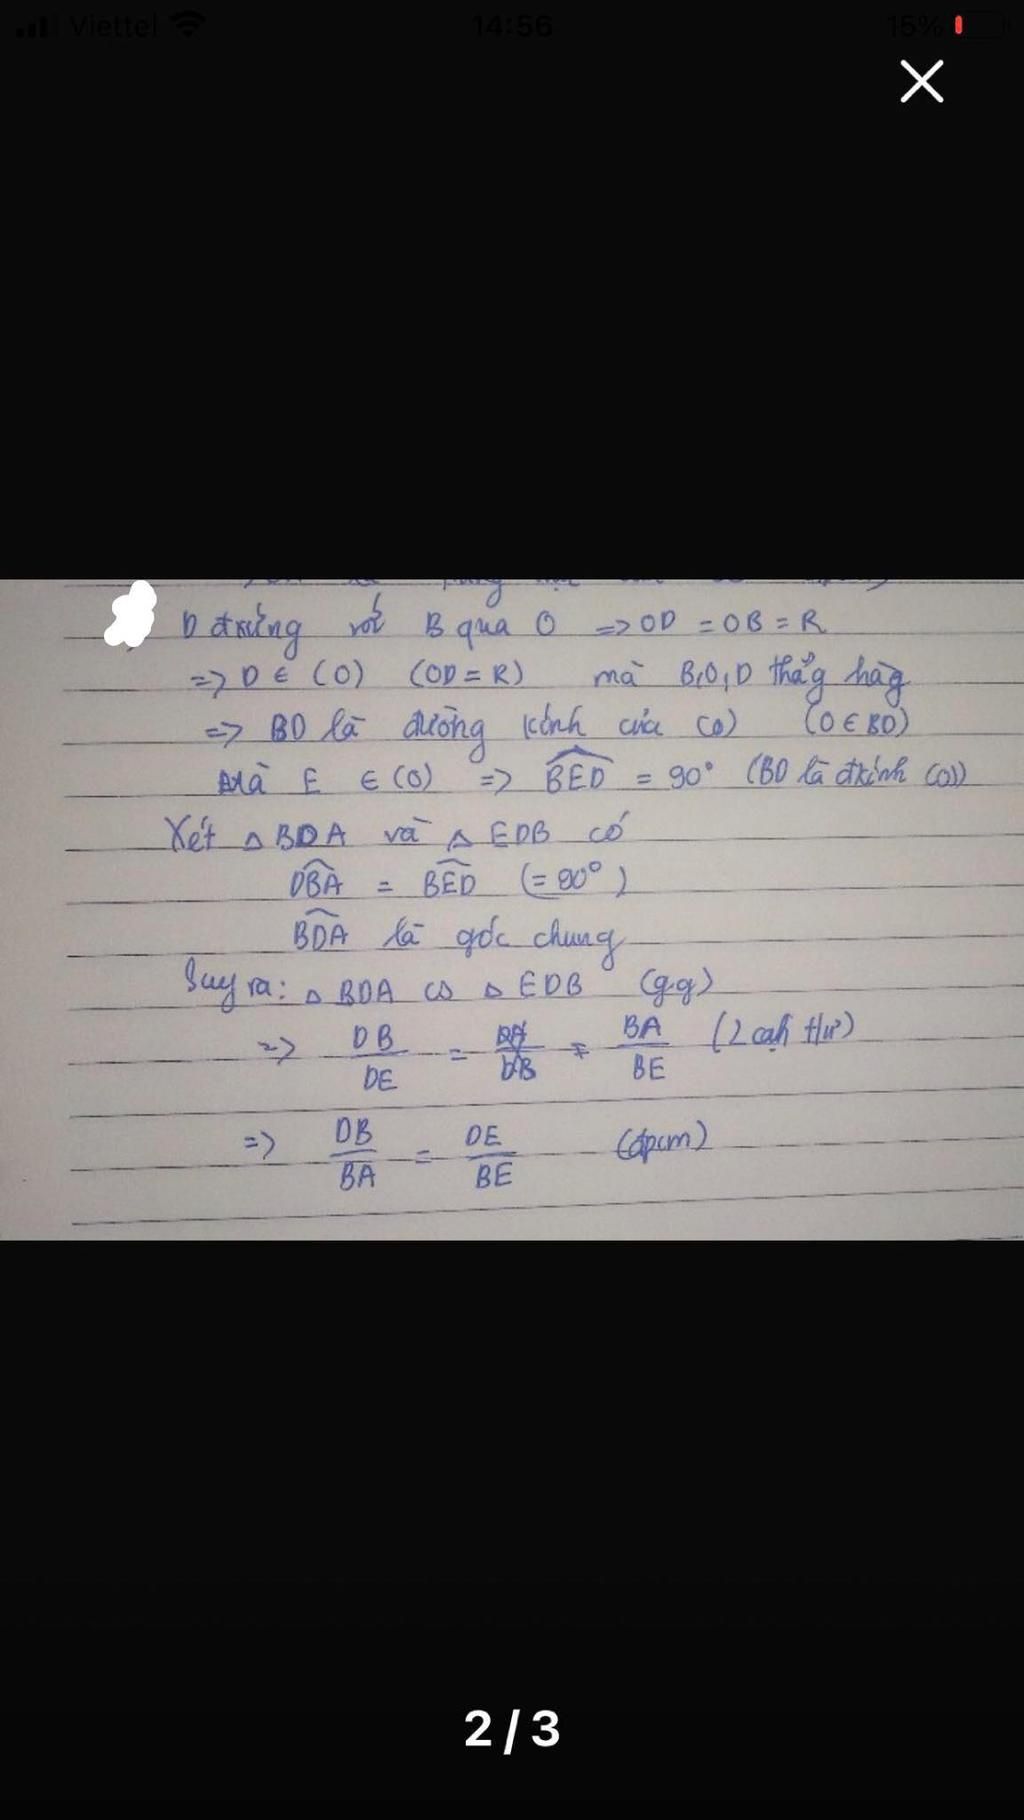 Viettel 14:56 15%
D đxứng với B qua O => OD = OB = R
=> D ∈ (O) (OD = R) mà B,O,D thẳg hàg
=> BD là đường kính của (O) (O ∈ BD)
Mà E ∈ (O) => BED = 90° (BD là đkính (O))
Xét △ BDA và △ EDB có
DBA = BED (= 90°)
BDA là góc chung
Suy ra: △ BDA ∽ △ EDB (g.g)
=> DB/DE = BA/BE (2 cạh tlứ)
=> DB/BA = DE/BE (đpcm)
2 / 3